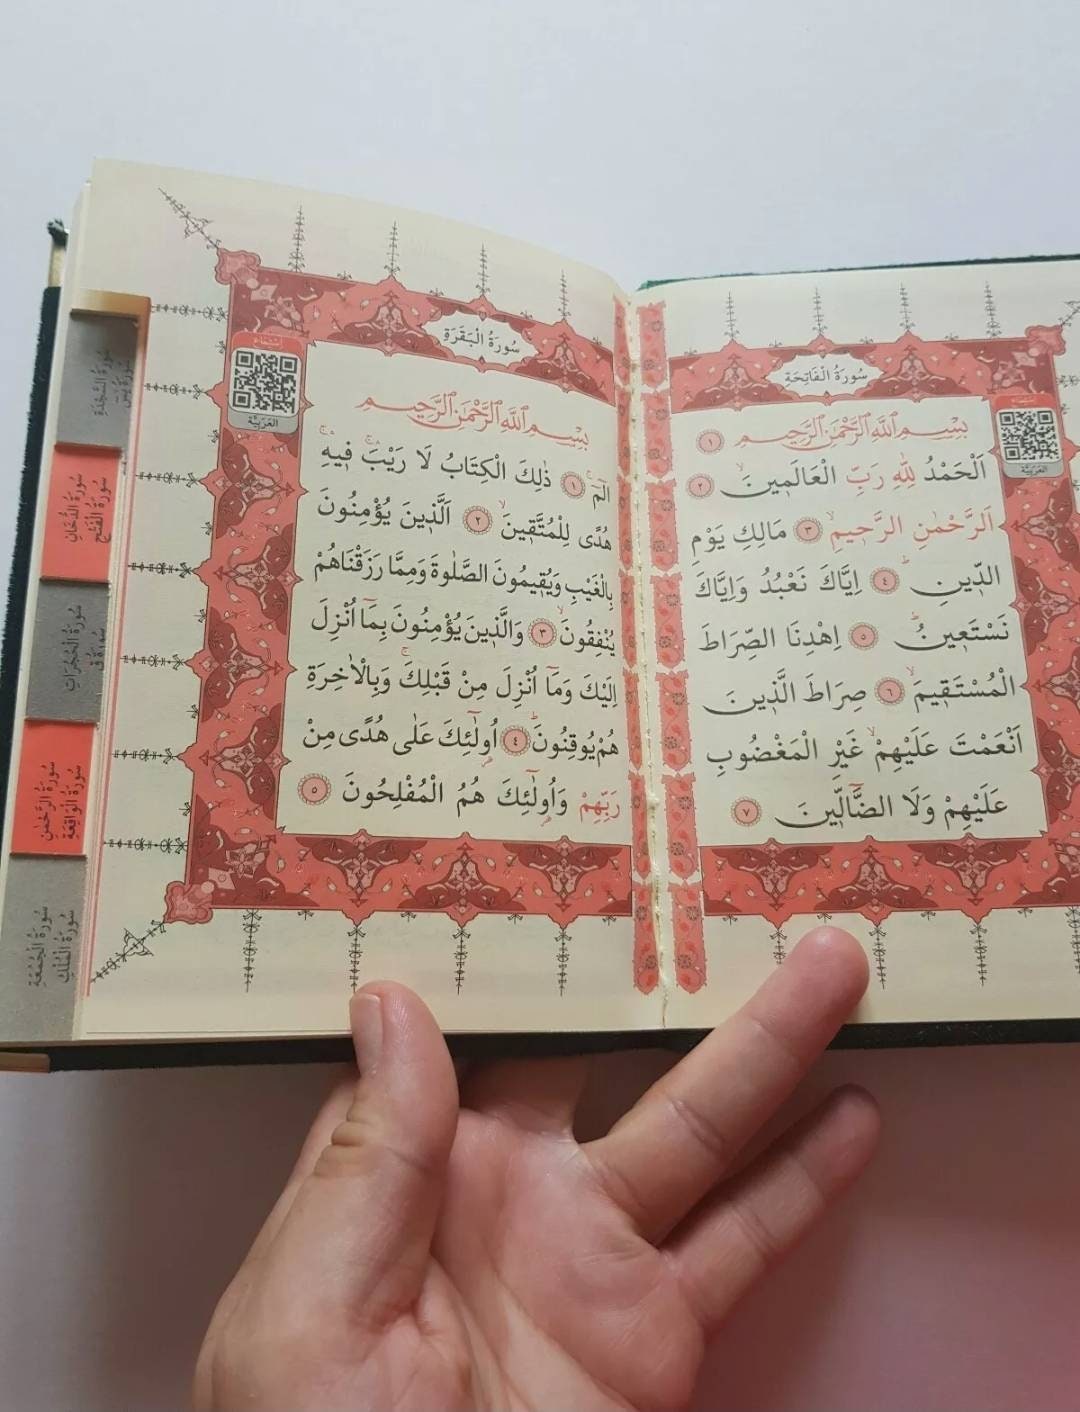 سُورَةُ الْفَاتِحَةِ
بِسْمِ اللّٰهِ الرَّحْمٰنِ الرَّحِيمِ ١
اَلْحَمْدُ لِلّٰهِ رَبِّ الْعَالَمِينَۙ ٢
اَلرَّحْمٰنِ الرَّحِيمِۙ ٣ مَالِكِ يَوْمِ
الدِّينِۜ ٤ اِيَّاكَ نَعْبُدُ وَاِيَّاكَ
نَسْتَعِينُۜ ٥ اِهْدِنَا الصِّرَاطَ
الْمُسْتَقِيمَۙ ٦ صِرَاطَ الَّذِينَ
اَنْعَمْتَ عَلَيْهِمْۙ غَيْرِ الْمَغْضُوبِ
عَلَيْهِمْ وَلَا الضَّٓالِّينَ ٧
اِسْتِمَاع
العَرَبِيَّة
سُورَةُ الْبَقَرَةِ
بِسْمِ اللّٰهِ الرَّحْمٰنِ الرَّحِيمِ
الٓمٓۚ ١ ذٰلِكَ الْكِتَابُ لَا رَيْبَۚۛ فِيهِۚۛ
هُدًى لِلْمُتَّقِينَۙ ٢ اَلَّذِينَ يُؤْمِنُونَ
بِالْغَيْبِ وَيُقِيمُونَ الصَّلٰوةَ وَمِمَّا رَزَقْنَاهُمْ
يُنْفِقُونَۙ ٣ وَالَّذِينَ يُؤْمِنُونَ بِمَٓا اُنْزِلَ
اِلَيْكَ وَمَٓا اُنْزِلَ مِنْ قَبْلِكَۚ وَبِالْاٰخِرَةِ
هُمْ يُوقِنُونَۜ ٤ اُو۬لٰٓئِكَ عَلٰى هُدًى مِنْ
رَبِّهِمْ وَاُو۬لٰٓئِكَ هُمُ الْمُفْلِحُونَ ٥
اِسْتِمَاع
العَرَبِيَّة
سُورَةُ السَّجْدَةِ
سُورَةُ يٰسٓ
سُورَةُ الدُّخَانِ
سُورَةُ الْفَتْحِ
سُورَةُ الْحُجُرَاتِ
سُورَةُ قٓ
سُورَةُ الرَّحْمٰنِ
سُورَةُ الْوَاقِعَةِ
سُورَةُ الْجُمُعَةِ
سُورَةُ الْمُلْكِ